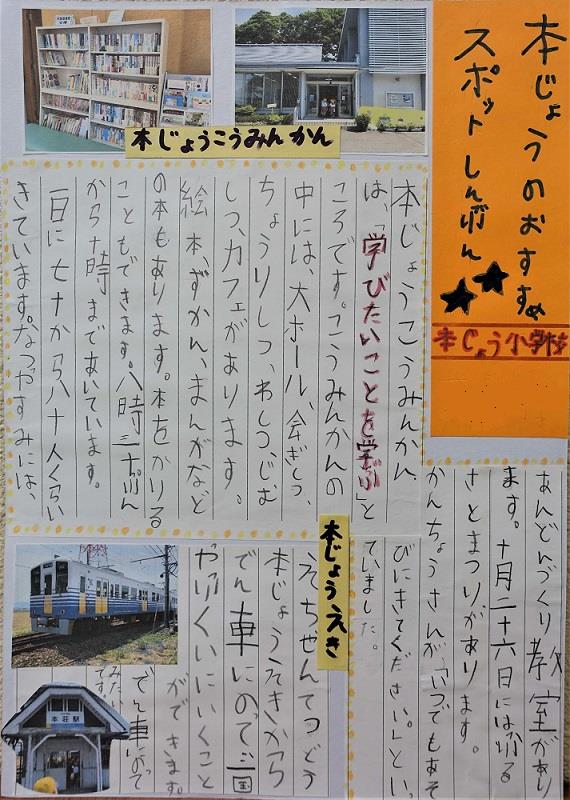 本じょうのおすすめ
スポットしんぶん★★
本じょう小学校
本じょうこうみんかん
本じょうこうみんかん
は、「学びたいことを学ぶ」と
ころです。こうみんかんの
中には、大ホール、会ぎしつ、
ちょうりしつ、わしつ、じむ
しつ、カフェがあります。
絵本、ずかん、まんがなど
の本もあります。本をかりる
こともできます。八時三十ぷん
から十時まであいています。
一日に七十から八十人くらい
きています。なつやすみには、
あんどんづくり教室があり
ます。十月二十六日にはふる
さとまつりがあります。
かんちょうさんが「いつでもあそ
びにきてください。」といっ
ていました。
本じょうえき
えちぜんてつどう
本じょうえきから
でん車にのって三国
やふくいにいくこと
ができます。
でん車にのって
みたい
です。
本荘駅